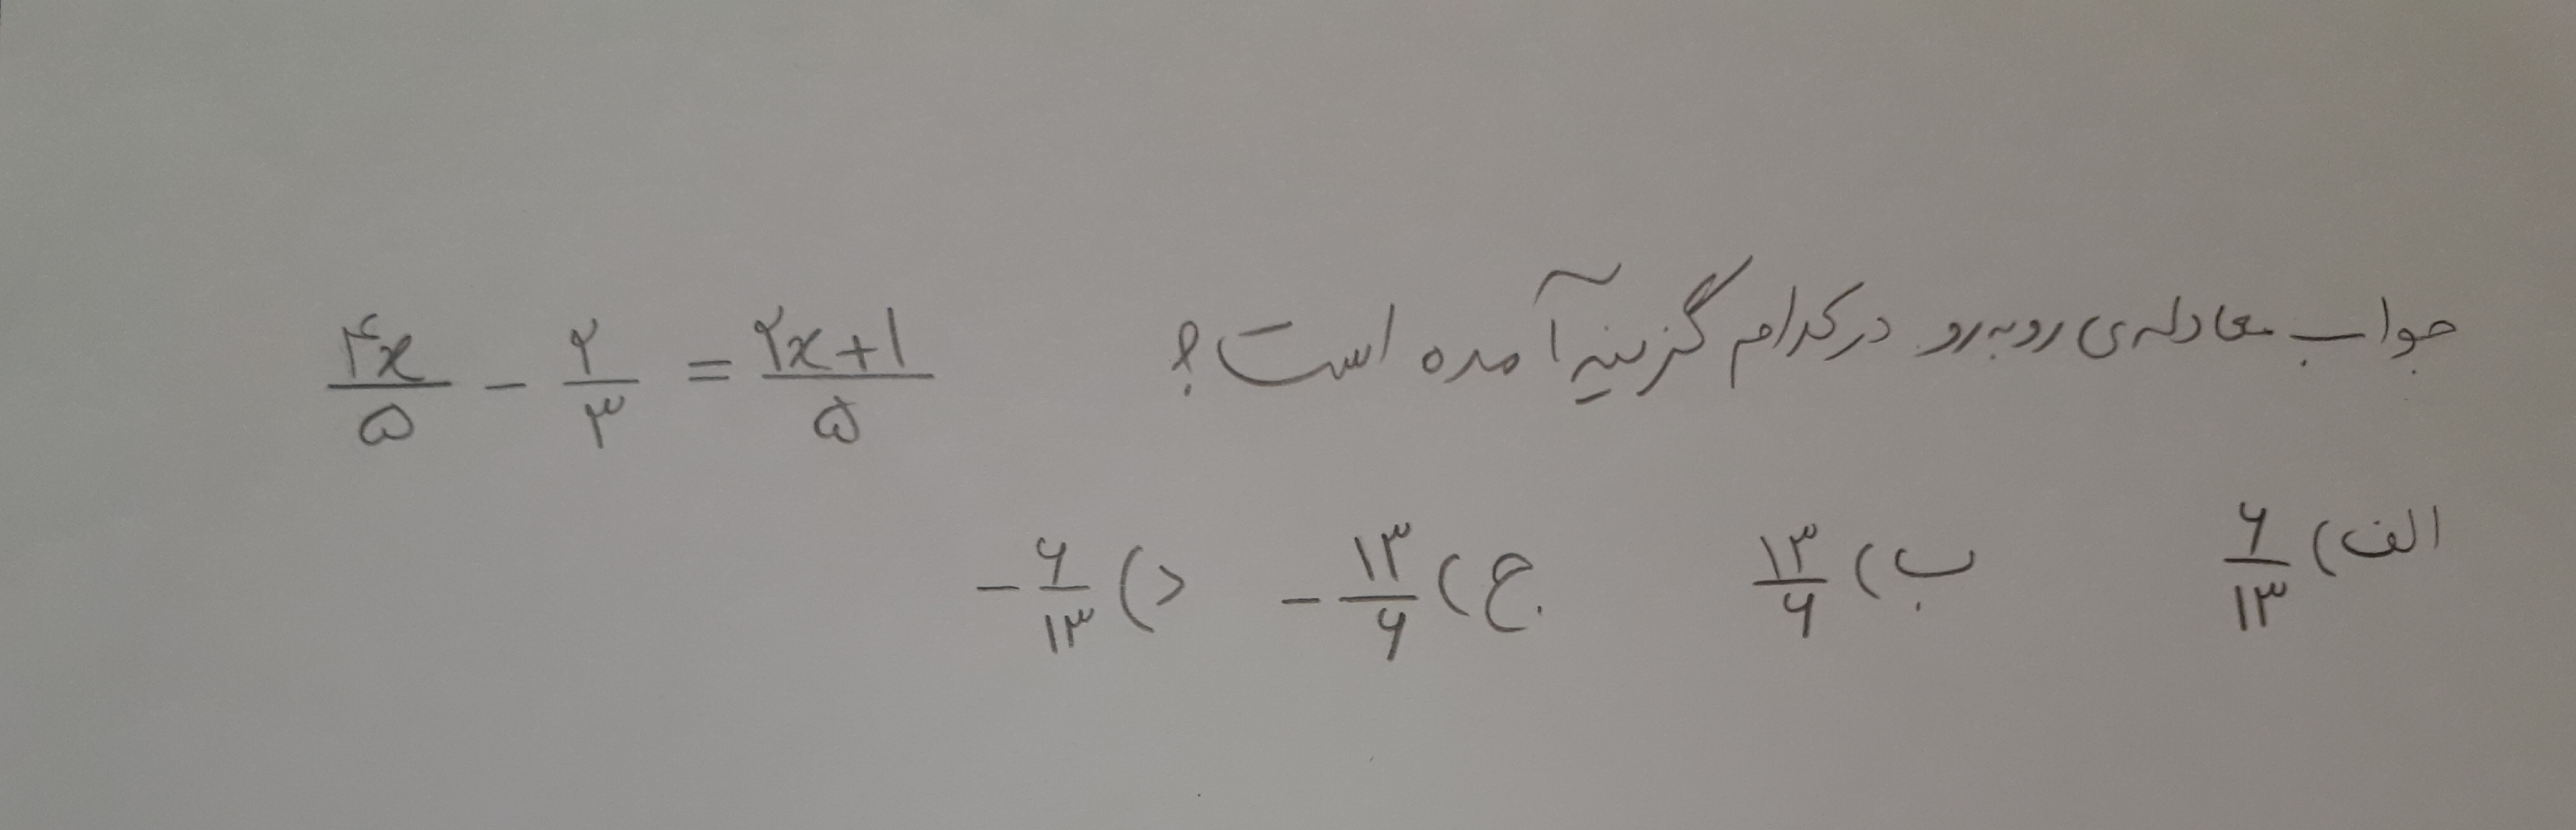 جواب معادله‌ی روبه‌رو در کدام گزینه آمده است؟ ۴x/۵ - ۲/۳ = ۲x+۱/۵
الف) ۶/۱۳ ب) ۱۳/۶ ج) -۱۳/۶ د) -۶/۱۳